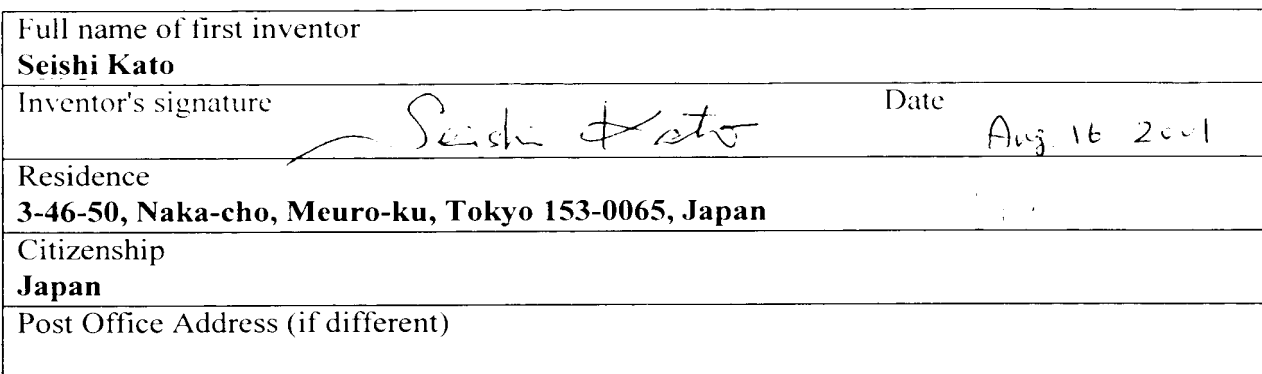 Full name of first inventor
Seishi Kato
Inventor's signature Seishi Kato Date Aug 16 2001
Residence
3-46-50, Naka-cho, Meuro-ku, Tokyo 153-0065, Japan
Citizenship
Japan
Post Office Address (if different)